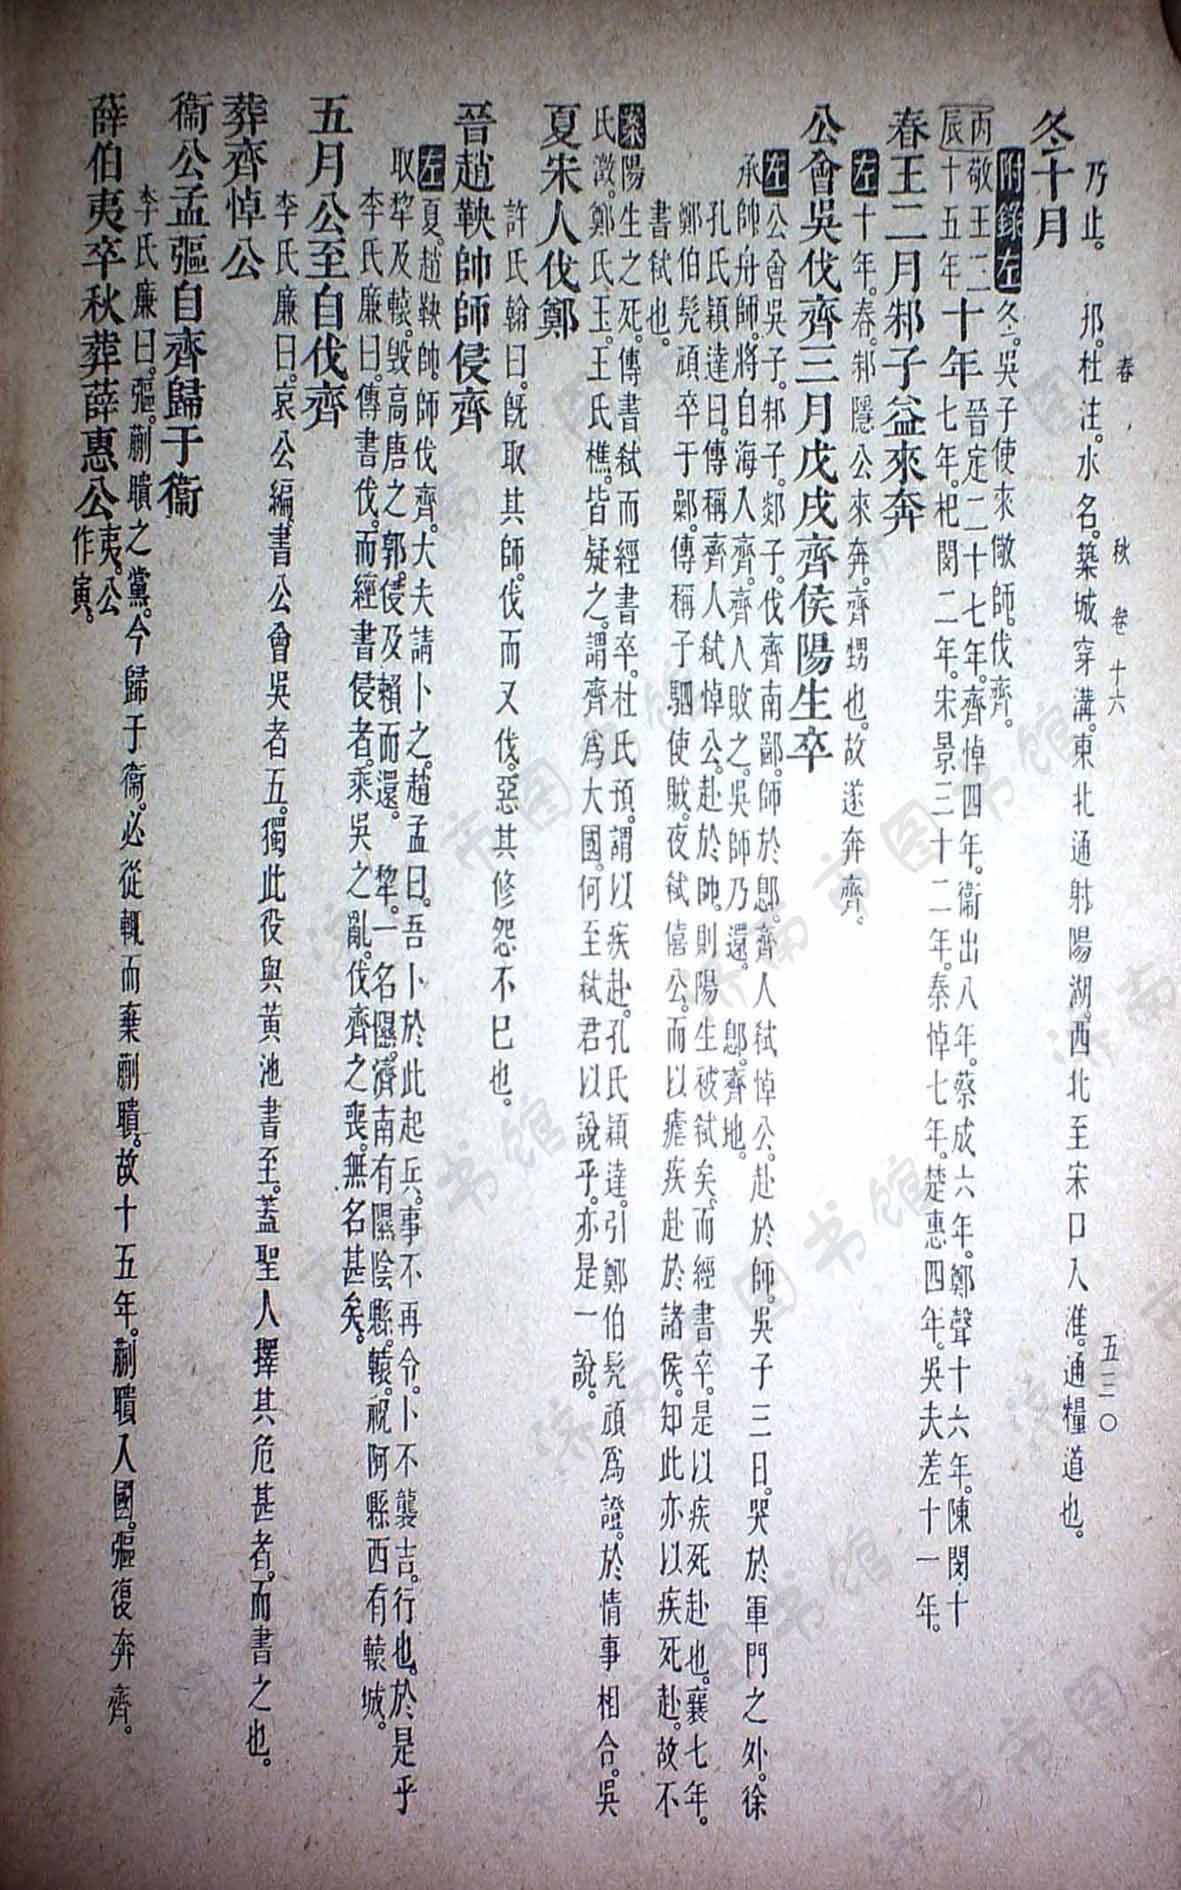 春秋 卷十六 五三〇
乃止。 邗。杜注。水名。築城穿溝。東北通射陽湖。西北至宋口入淮。通糧道也。
冬十月
附錄左冬。吳子使來儆師。伐齊。
丙辰敬王三十五年十年晉定二十七年。齊悼四年。衞出八年。蔡成六年。鄭聲十六年。陳閔十七年。杞閔二年。宋景三十二年。秦悼七年。楚惠四年。吳夫差十一年。
春王二月邾子益來奔
左十年。春。邾隱公來奔。齊甥也。故遂奔齊。
公會吳伐齊三月戊戌齊侯陽生卒
左公會吳子。邾子。郯子。伐齊南鄙。師於鄎。齊人弒悼公。赴於師。吳子三日。哭於軍門之外。徐
承帥舟師。將自海入齊。齊人敗之。吳師乃還。 鄎。齊地。
孔氏穎達曰。傳稱齊人弒悼公。赴於師。則陽生被弒矣。而經書卒。是以疾死赴也。襄七年。
鄭伯髡頑卒于鄵。傳稱子駟使賊。夜弒僖公。而以瘧疾赴於諸侯。知此亦以疾死赴。故不
書弒也。
案陽生之死。傳書弒而經書卒。杜氏預。謂以疾赴。孔氏穎達。引鄭伯髡頑爲證。於情事相合。吳
氏澂。鄭氏玉。王氏樵。皆疑之。謂齊爲大國。何至弒君以說乎。亦是一說。
夏宋人伐鄭
許氏翰曰。旣取其師。伐而又伐。惡其修怨不已也。
晉趙鞅帥師侵齊
左夏。趙鞅帥。師伐齊。大夫請卜之。趙孟曰。吾卜於此起兵。事不再令。卜不襲吉。行也。於是乎
取犂及轅。毀高唐之郭。侵及賴而還。 犂。一名隰。濟南有隰陰縣。轅。祝阿縣西有轅城。
李氏廉曰。傳書伐。而經書侵者。乘吳之亂。伐齊之喪。無名甚矣。
五月公至自伐齊
李氏廉曰。哀公編。書公會吳者五。獨此役與黃池書至。蓋聖人擇其危甚者。而書之也。
葬齊悼公
衞公孟彄自齊歸于衞
李氏廉曰。彄。蒯聵之黨。今歸于衞。必從輒而棄蒯聵。故十五年。蒯聵入國。彄復奔齊。
薛伯夷卒秋葬薛惠公夷。公作寅。